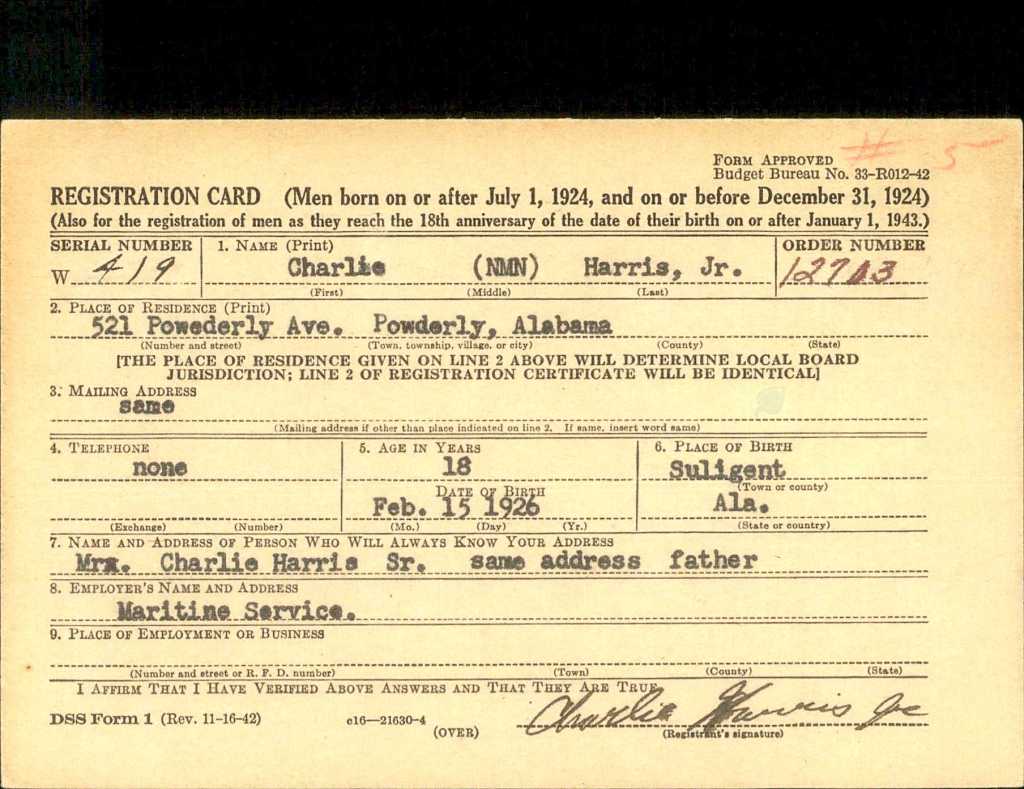 # 5
FORM APPROVED
Budget Bureau No. 33-R012-42
REGISTRATION CARD (Men born on or after July 1, 1924, and on or before December 31, 1924)
(Also for the registration of men as they reach the 18th anniversary of the date of their birth on or after January 1, 1943.)
SERIAL NUMBER 1. NAME (Print) ORDER NUMBER
W 419 Charlie (NMN) Harris, Jr. 12703
(First) (Middle) (Last)
2. PLACE OF RESIDENCE (Print)
521 Powederly Ave. Powderly, Alabama
(Number and street) (Town, township, village, or city) (County) (State)
[THE PLACE OF RESIDENCE GIVEN ON LINE 2 ABOVE WILL DETERMINE LOCAL BOARD
JURISDICTION; LINE 2 OF REGISTRATION CERTIFICATE WILL BE IDENTICAL]
3. MAILING ADDRESS
same
(Mailing address if other than place indicated on line 2. If same, insert word same)
4. TELEPHONE 5. AGE IN YEARS 6. PLACE OF BIRTH
none 18 Suligent
DATE OF BIRTH (Town or county)
Feb. 15 1926 Ala.
(Exchange) (Number) (Mo.) (Day) (Yr.) (State or country)
7. NAME AND ADDRESS OF PERSON WHO WILL ALWAYS KNOW YOUR ADDRESS
Mr. Charlie Harris Sr. same address father
8. EMPLOYER'S NAME AND ADDRESS
Maritine Service.
9. PLACE OF EMPLOYMENT OR BUSINESS
(Number and street or R. F. D. number) (Town) (County) (State)
I AFFIRM THAT I HAVE VERIFIED ABOVE ANSWERS AND THAT THEY ARE TRUE.
Charlie Harris Jr
DSS Form 1 (Rev. 11-16-42) c16—21630-4 (OVER) (Registrant's signature)